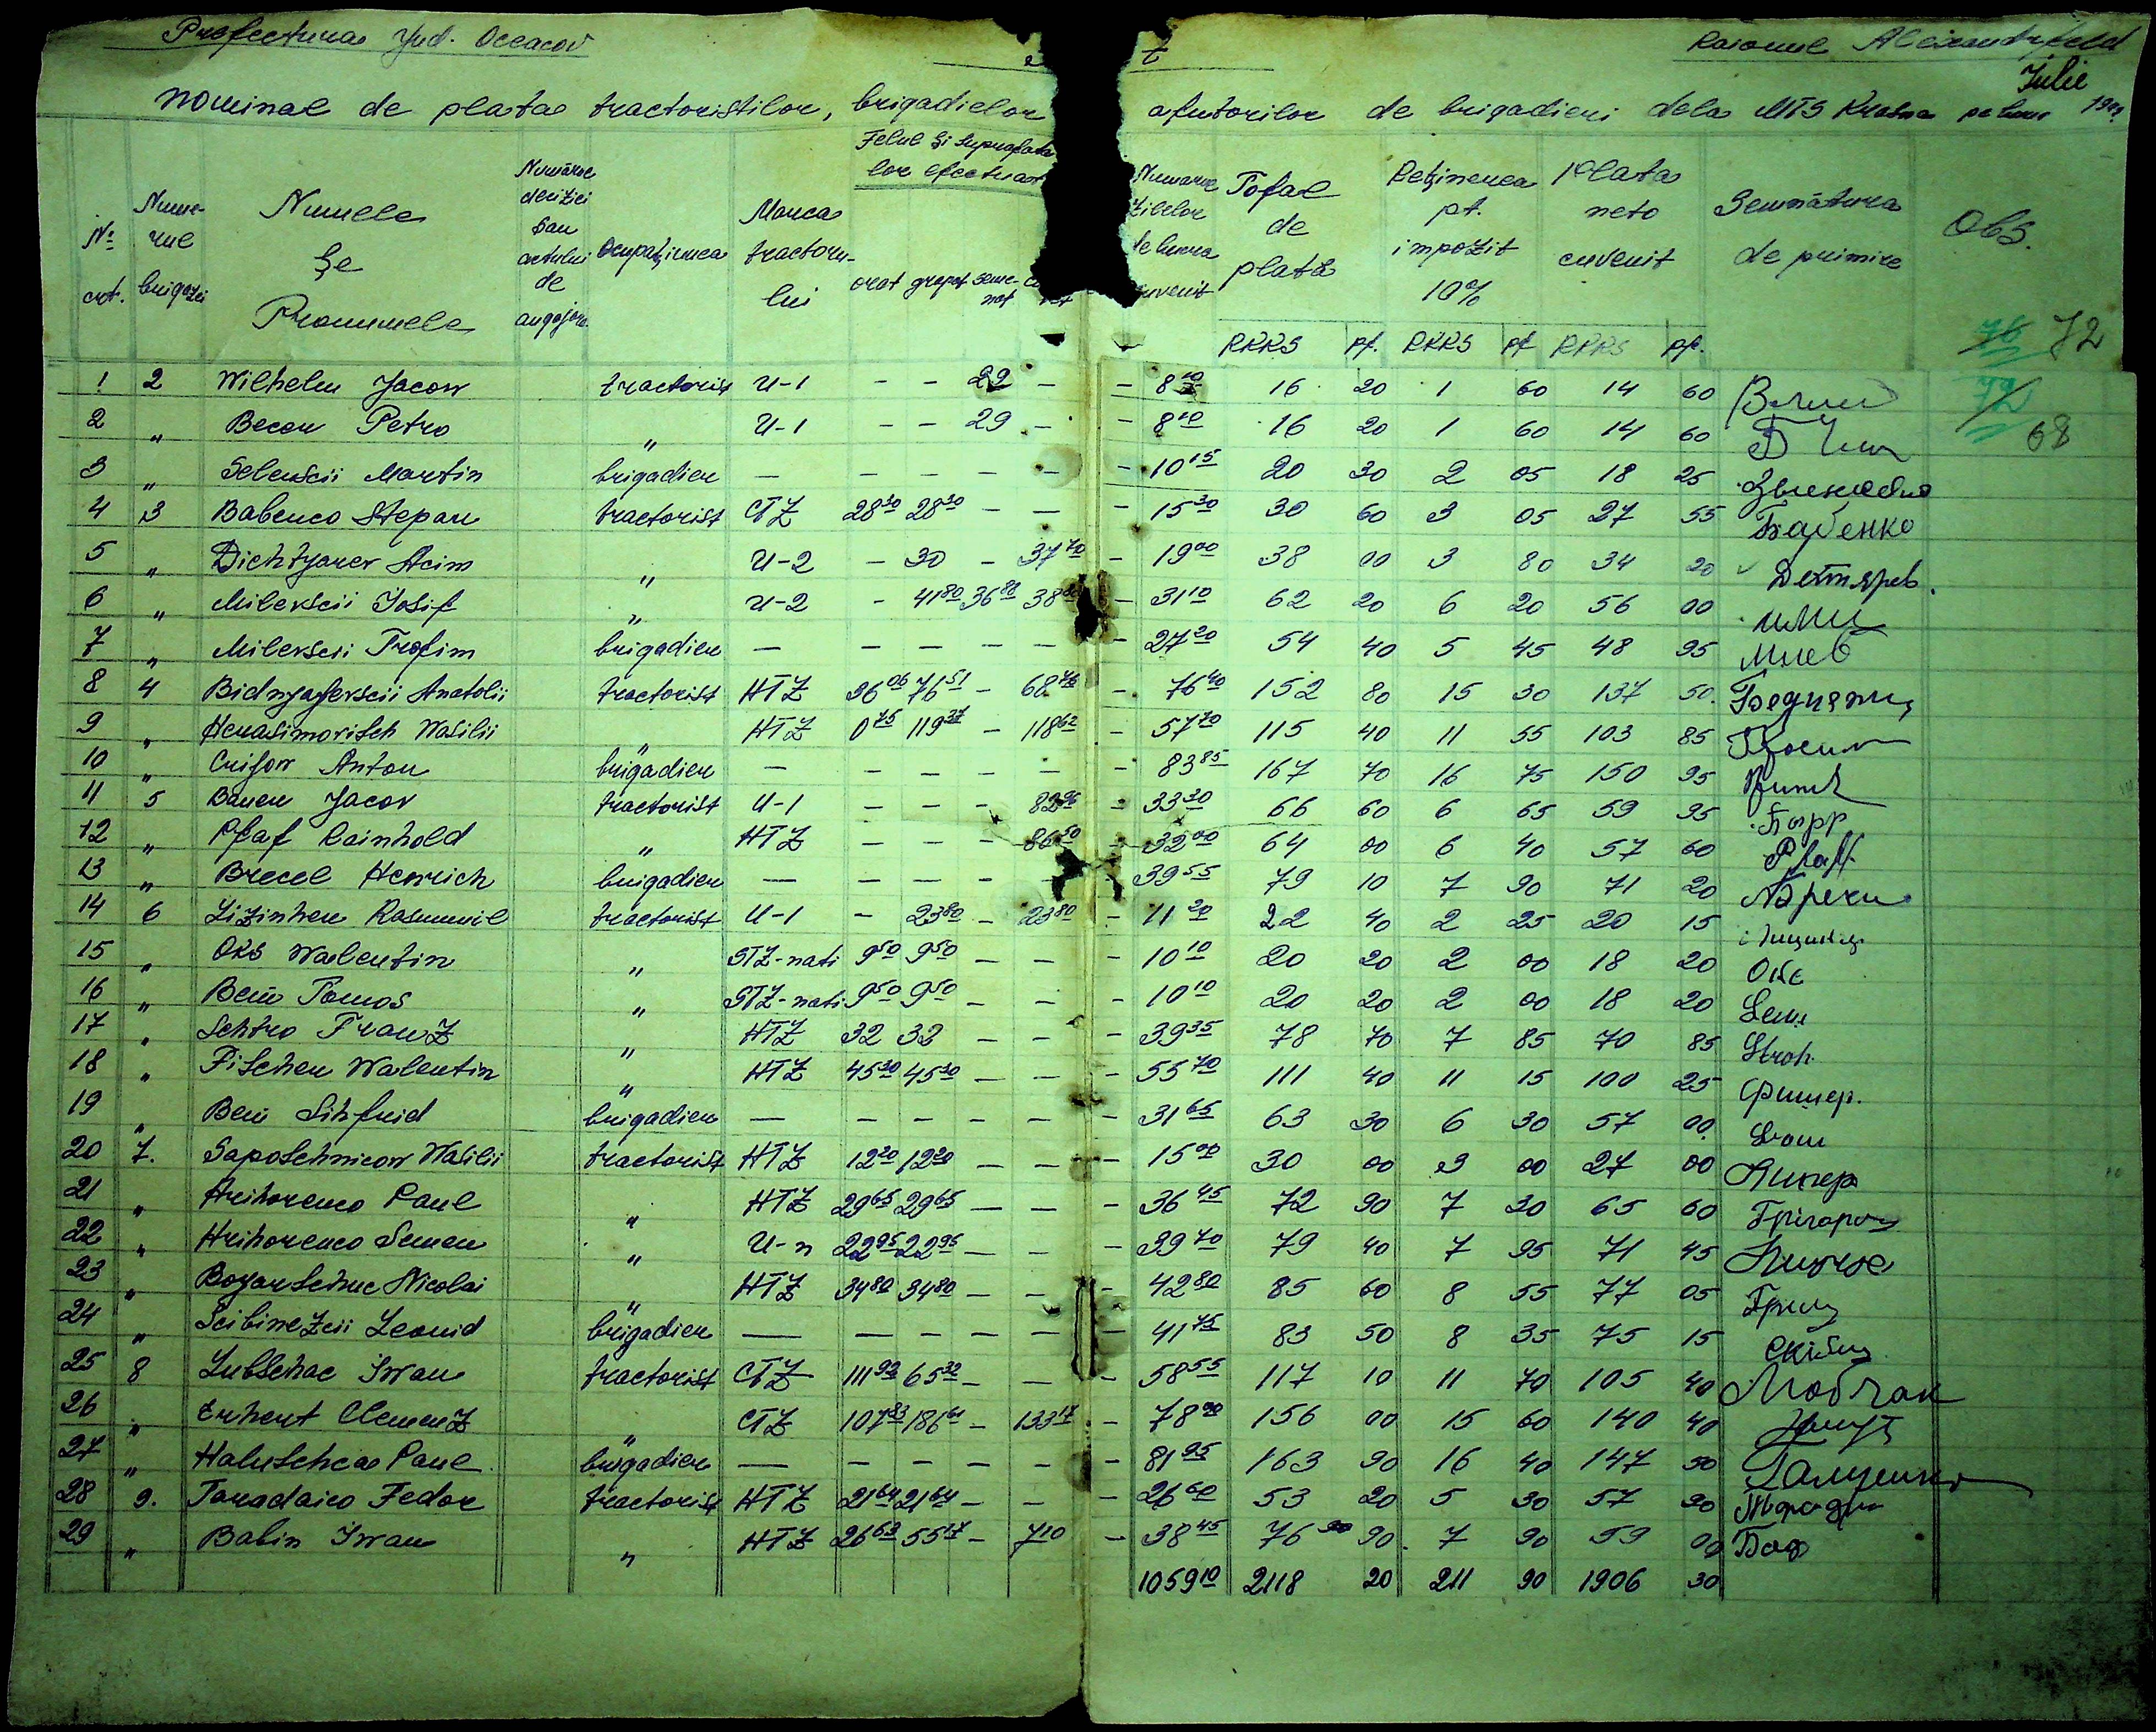 Prefectura Jud. Oceacov
Raionul Alexandrfeld
Julie
nominal de plata tractoristilor, brigadielor ajutorilor de brigadieri dela MTS Krasna pe luna
Nº crt. Numerul brigăzii Numele Şe Pronumele Numărul deciziei sau actului de angajare Ocupaţiunea Marca tractorului Felul și suprafata lor efectuar orat grapat semenat Numarul zilelor de lucru cuvenit Total de plată Reţinerea pt. impozit 10% Plata neto cuvenit Semnătura de primire Obs.
RKKS pf. RKKS pf RKKS pf.
76 72
72
68
1 2 Wilhelm Jacow tractorist U-1 - - 29 - - 8 10 16 20 1 60 14 60
2 " Becer Petro " U-1 - - 29 - - 8 10 16 20 1 60 14 60
3 " Selenscii Martin brigadier - - - - - - 10 15 20 30 2 05 18 25
4 3 Babenco Stepan tractorist CTZ 28 30 28 30 - - - 15 30 30 60 3 05 27 55 Бабенко
5 " Dichtyarer Acim " U-2 - 30 - 37 70 - 19 00 38 00 3 80 34 20 Дегтярев.
6 " Milevscii Josif " U-2 - 41 80 36 80 38 - 31 10 62 20 6 20 56 00
7 " Milevscii Trofim brigadier - - - - - - 27 20 54 40 5 45 48 95 Милев
8 4 Bidnyajevscii Anatolii tractorist HTZ 96 06 76 51 - 68 46 - 76 40 152 80 15 30 137 50
9 " Herasimovitsch Wasilii " HTZ 0 75 119 37 - 118 62 - 57 70 115 40 11 55 103 85
10 " Crijow Anton brigadier - - - - - - 83 85 167 70 16 75 150 95
11 5 Bauer Jacov tractorist U-1 - - - 82 96 - 33 30 66 60 6 65 59 95
12 " Pfaf Rainhold " HTZ - - - 86 50 - 32 00 64 00 6 40 57 60 Pfaff
13 " Brecel Henrich brigadier - - - - - - 39 55 79 10 7 90 71 20
14 6 Zizinher Rasmuvil tractorist U-1 - 23 80 - 23 80 - 11 20 22 40 2 25 20 15
15 " Oks Walentin " STZ-nati 9 50 9 50 - - - 10 10 20 20 2 00 18 20 Окс
16 " Beiu Tomos " STZ-nati 9 50 9 50 - - - 10 10 20 20 2 00 18 20
17 " Schtro Franz " HTZ 32 32 - - - 39 35 78 70 7 85 70 85 Stroh
18 " Fischer Walentin " HTZ 45 30 45 30 - - - 55 70 111 40 11 15 100 25 Фишер.
19 " Beiu Sihfrid brigadier - - - - - - 31 65 63 30 6 30 57 00
20 7. Saposchnicow Wasilii tractorist HTZ 12 20 12 20 - - - 15 00 30 00 3 00 27 00
21 " Hrihorenco Paul " HTZ 29 65 29 65 - - - 36 45 72 90 7 30 65 60
22 " Hrihorenco Semen " U-n 22 95 22 95 - - - 39 70 79 40 7 95 71 45
23 " Boyarschuc Nicolai " HTZ 34 80 34 80 - - - 42 80 85 60 8 55 77 05
24 " Scibinezcii Leonid brigadier - - - - - - 41 75 83 50 8 35 75 15
25 8 Lubschac Iwan tractorist CTZ 111 92 65 32 - - - 58 55 117 10 11 70 105 40
26 " Erhert Clemenz " CTZ 107 83 186 61 - 133 17 - 78 00 156 00 15 60 140 40
27 " Haluschca Paul brigadier - - - - - - 81 95 163 90 16 40 147 50 Галушка
28 9. Taradaico Fedor tractorist HTZ 21 64 21 64 - - - 26 60 53 20 5 30 57 90
29 " Babin Iwan " HTZ 26 63 55 17 - 7 20 - 38 45 76 90 7 90 59 00
1059 10 2118 20 211 90 1906 30